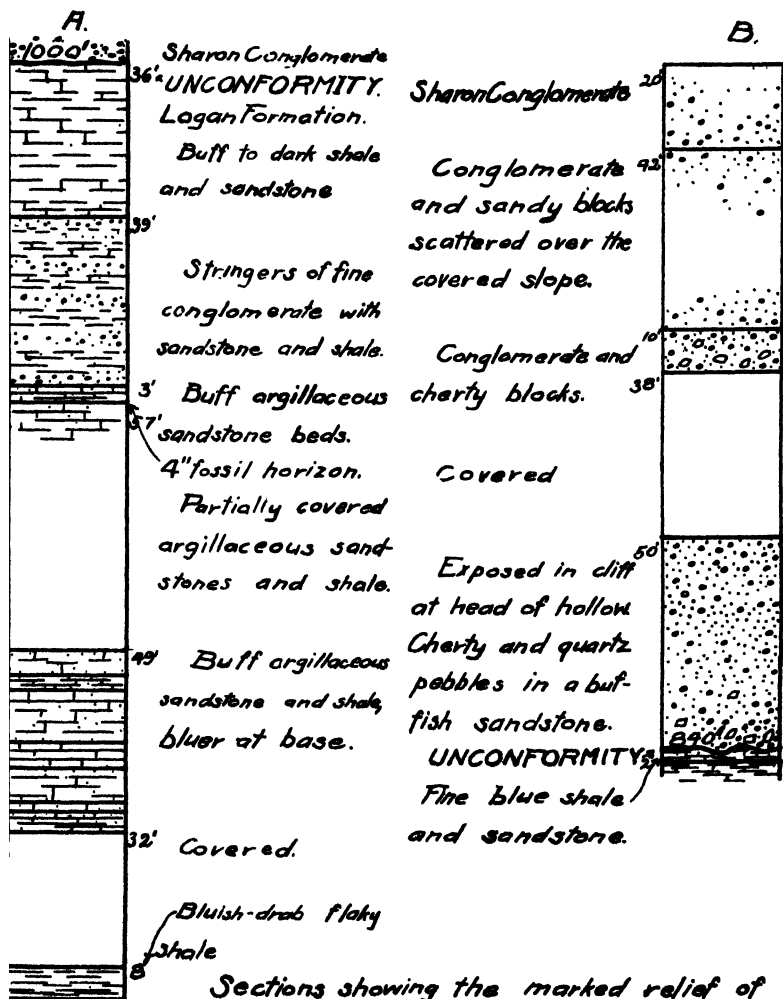 A.
1000'
Sharon Conglomerate
36'
UNCONFORMITY.
Logan Formation.
Buff to dark shale
and sandstone
39'
Stringers of fine
conglomerate with
sandstone and shale.
3'
Buff argillaceous
sandstone beds.
57'
4" fossil horizon.
Partially covered
argillaceous sand-
stones and shale.
49'
Buff argillaceous
sandstone and shale,
bluer at base.
32'
Covered.
Bluish-drab flaky
shale
8'
B.
Sharon Conglomerate
20'
Conglomerate
92'
and sandy blocks
scattered over the
covered slope.
10'
Conglomerate and
cherty blocks.
38'
Covered
50'
Exposed in cliff
at head of hollow.
Cherty and quartz
pebbles in a buf-
fish sandstone.
840'
UNCONFORMITY
2'
Fine blue shale
and sandstone.
Sections showing the marked relief of